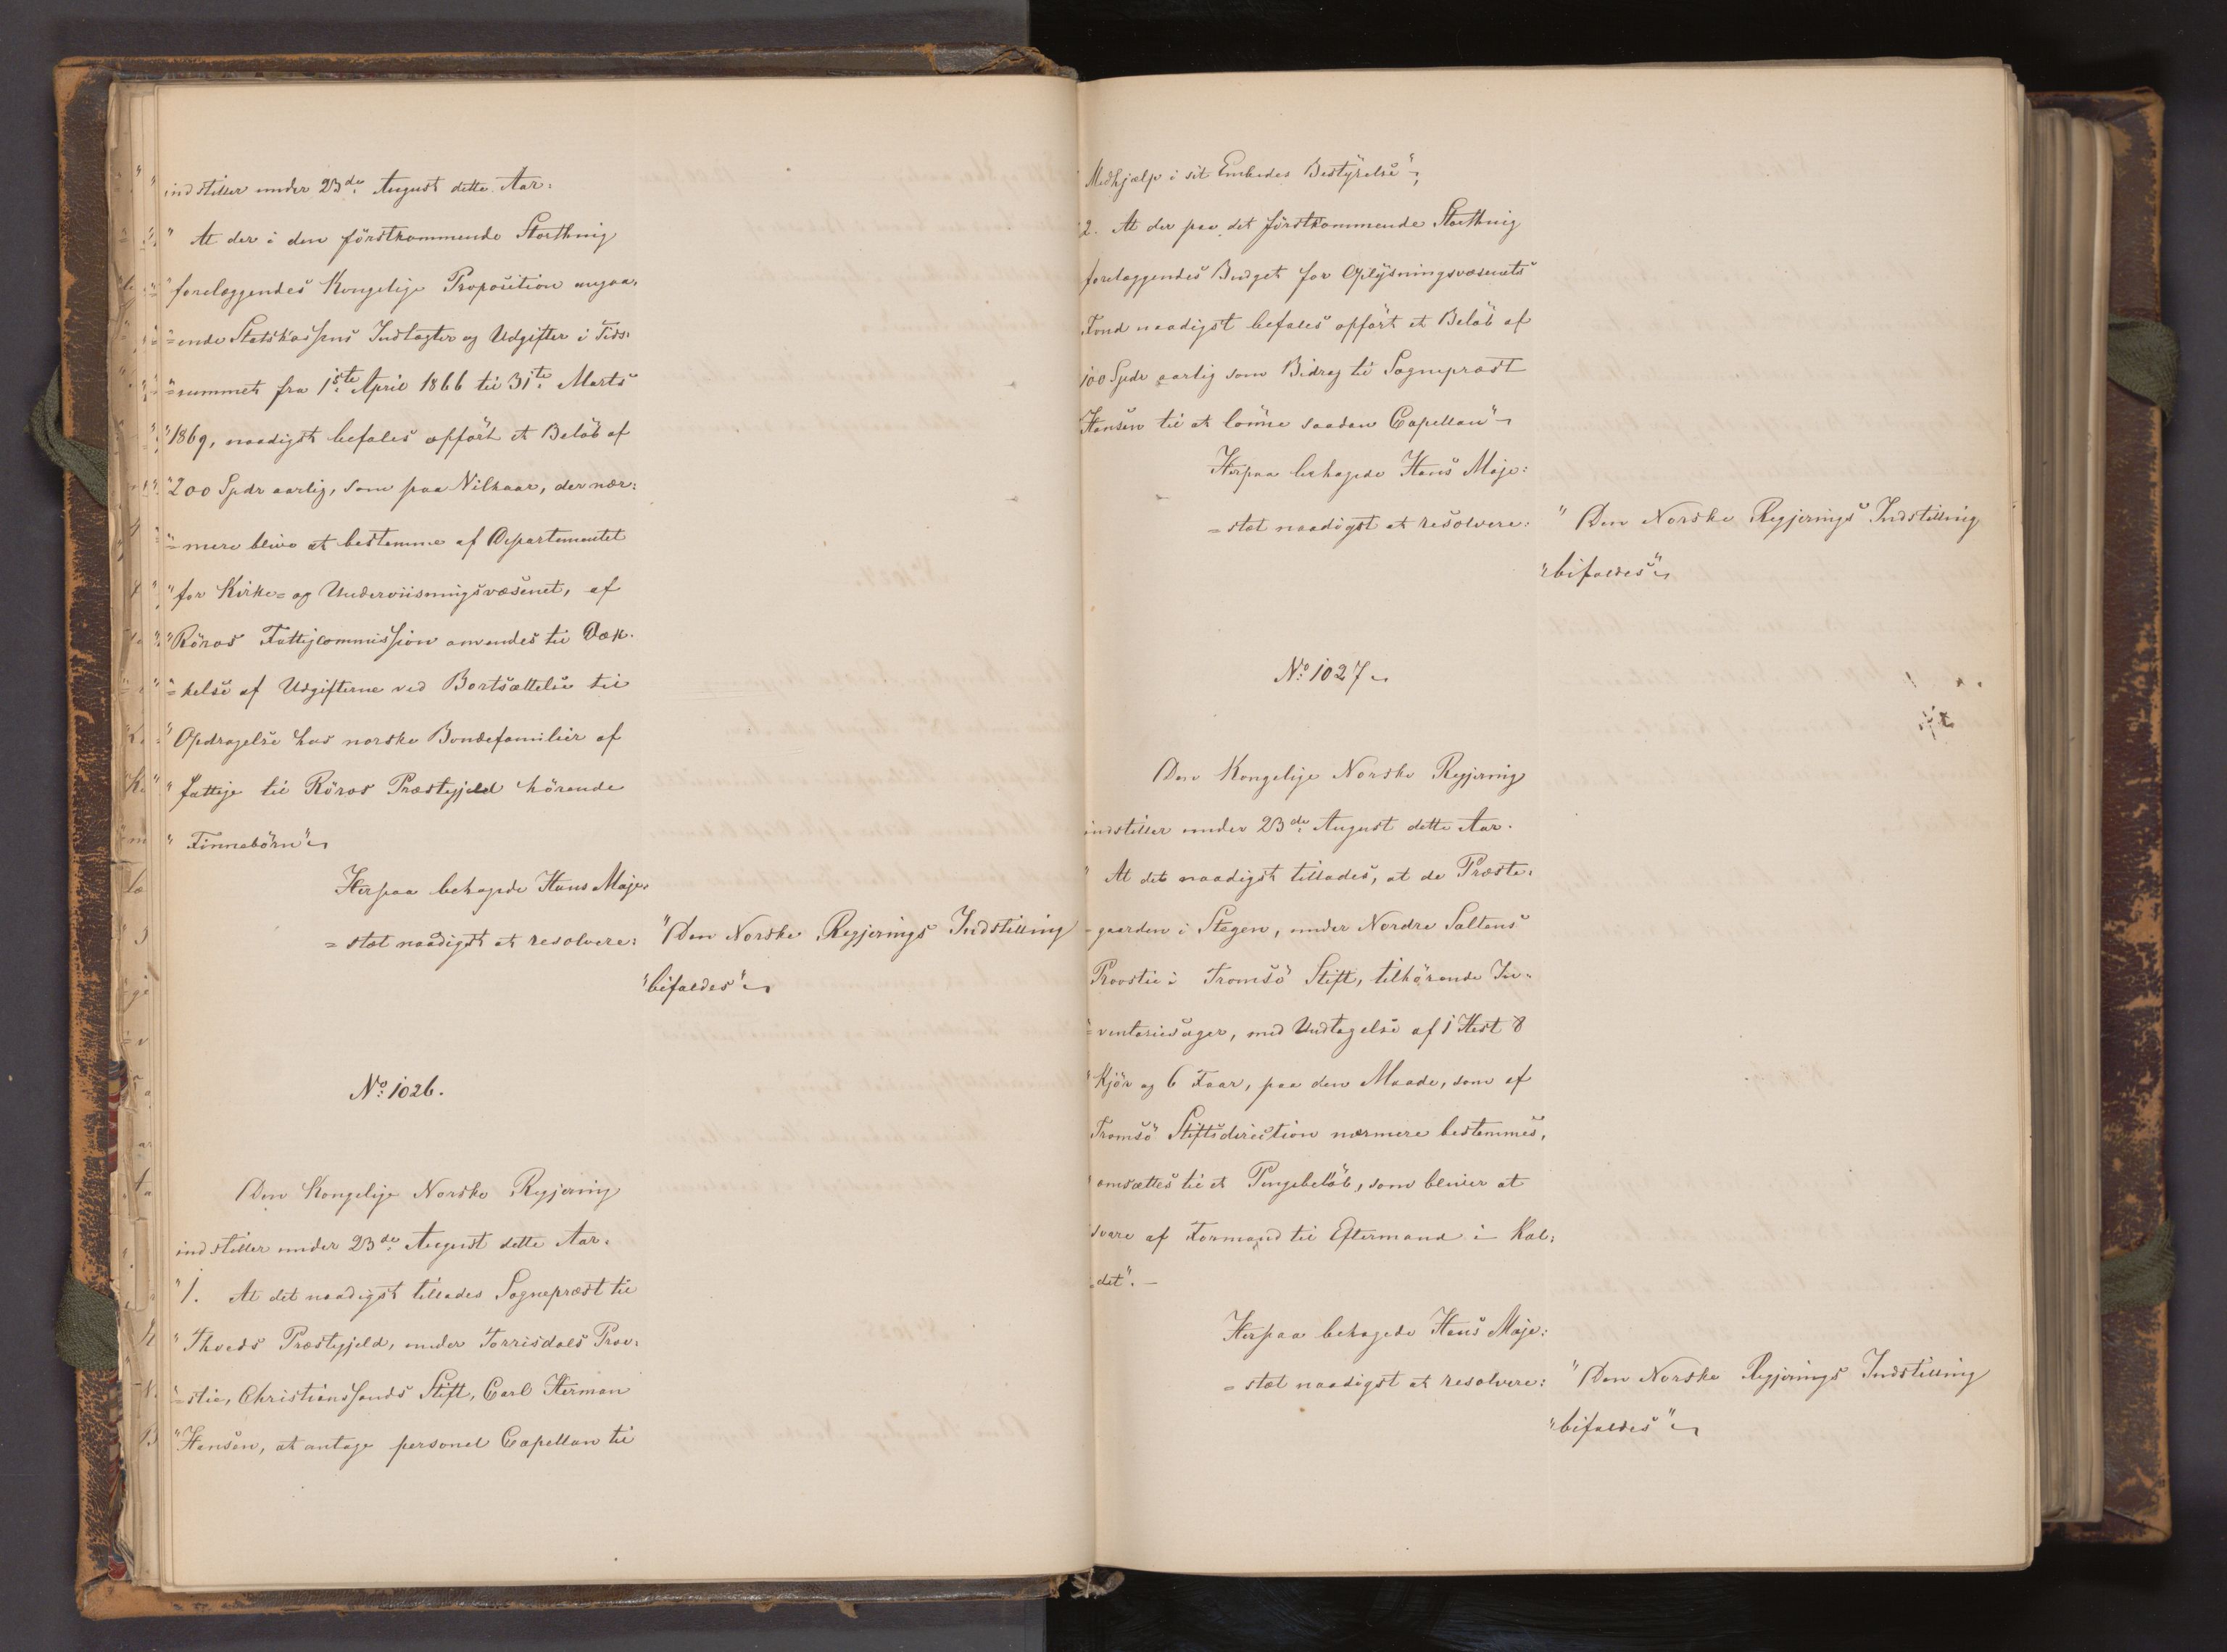 indstiller under 23de August dette Aar:
" At der i den förstkommende Storthing
" forelæggendes Kongelige Proposition angaa,
"=ende Statskassens Indtægter og Udgifter i Tids:
"=rummet fra 1ste April 1866 til 31te Marts
" 1869, naadigst befales opfört et Belöb af
" 200 Spdr aarlig, som paa Vilkaar, der nær:
"=mere blive at bestemme af Departementet
" for Kirke= og Underviisningsvæsenet, af
" Röros Fattigcommission anvendes til Dæk.
"=kelse af Udgifterne ved Bortsættelse til
" Opdragelse hos norske Bondefamilier af
" fattige til Röros Præstegjeld hörende
" Finnebörn"
Herpaa behagede Hans Maje:
=stæt naadigst at resolvere:
" Den Norske Regjerings Indstilling
" bifaldes"
No: 1026.
Den Kongelige Norske Regjering
indstiller under 23de August dette Aar.
" 1. At det naadigst tillades Sognepræst til
" Thveds Præstegjeld, under Torrisdals Prov:
"=stie, Christianssands Stift, Carl Herman
" Hansen, at antage personel Capellan til
Medhjælp i sit Embedes Bestyrelse",
2. At der paa det förstkommende Storthing
forelæggendes Budget for Oplysningsvæsenets
Fond naadigst befales opfört et Belöb af
100 Spdr aarlig som Bidrag til Sognepræst
Hansen til at lönne saadan Capellan"
Herpaa behagede Hans Maje:
=stæt naadigst at resolvere:
" Den Norske Regjerings Indstilling
" bifaldes"
No: 1027
Den Kongelige Norske Regjering
indstiller under 23de August dette Aar.
" At det naadigst tillades, at de Præste:
=gaarden i Stegen, under Nordre Saltens
Provstie i Tromsö Stift, tilhörende In:
=ventariesager, med Undtagelse af 1 Hest 8
" Kjör og 6 Faar, paa den Maade, som af
Tromsö Stiftsdirection nærmere bestemmes,
" omsættes til et Pengebelöb, som bliver at
svare af Formand til Eftermand i Kal:
=det". —
Herpaa behagede Hans Maje:
=stæt naadigst at resolvere:
" Den Norske Regjerings Indstilling
" bifaldes"